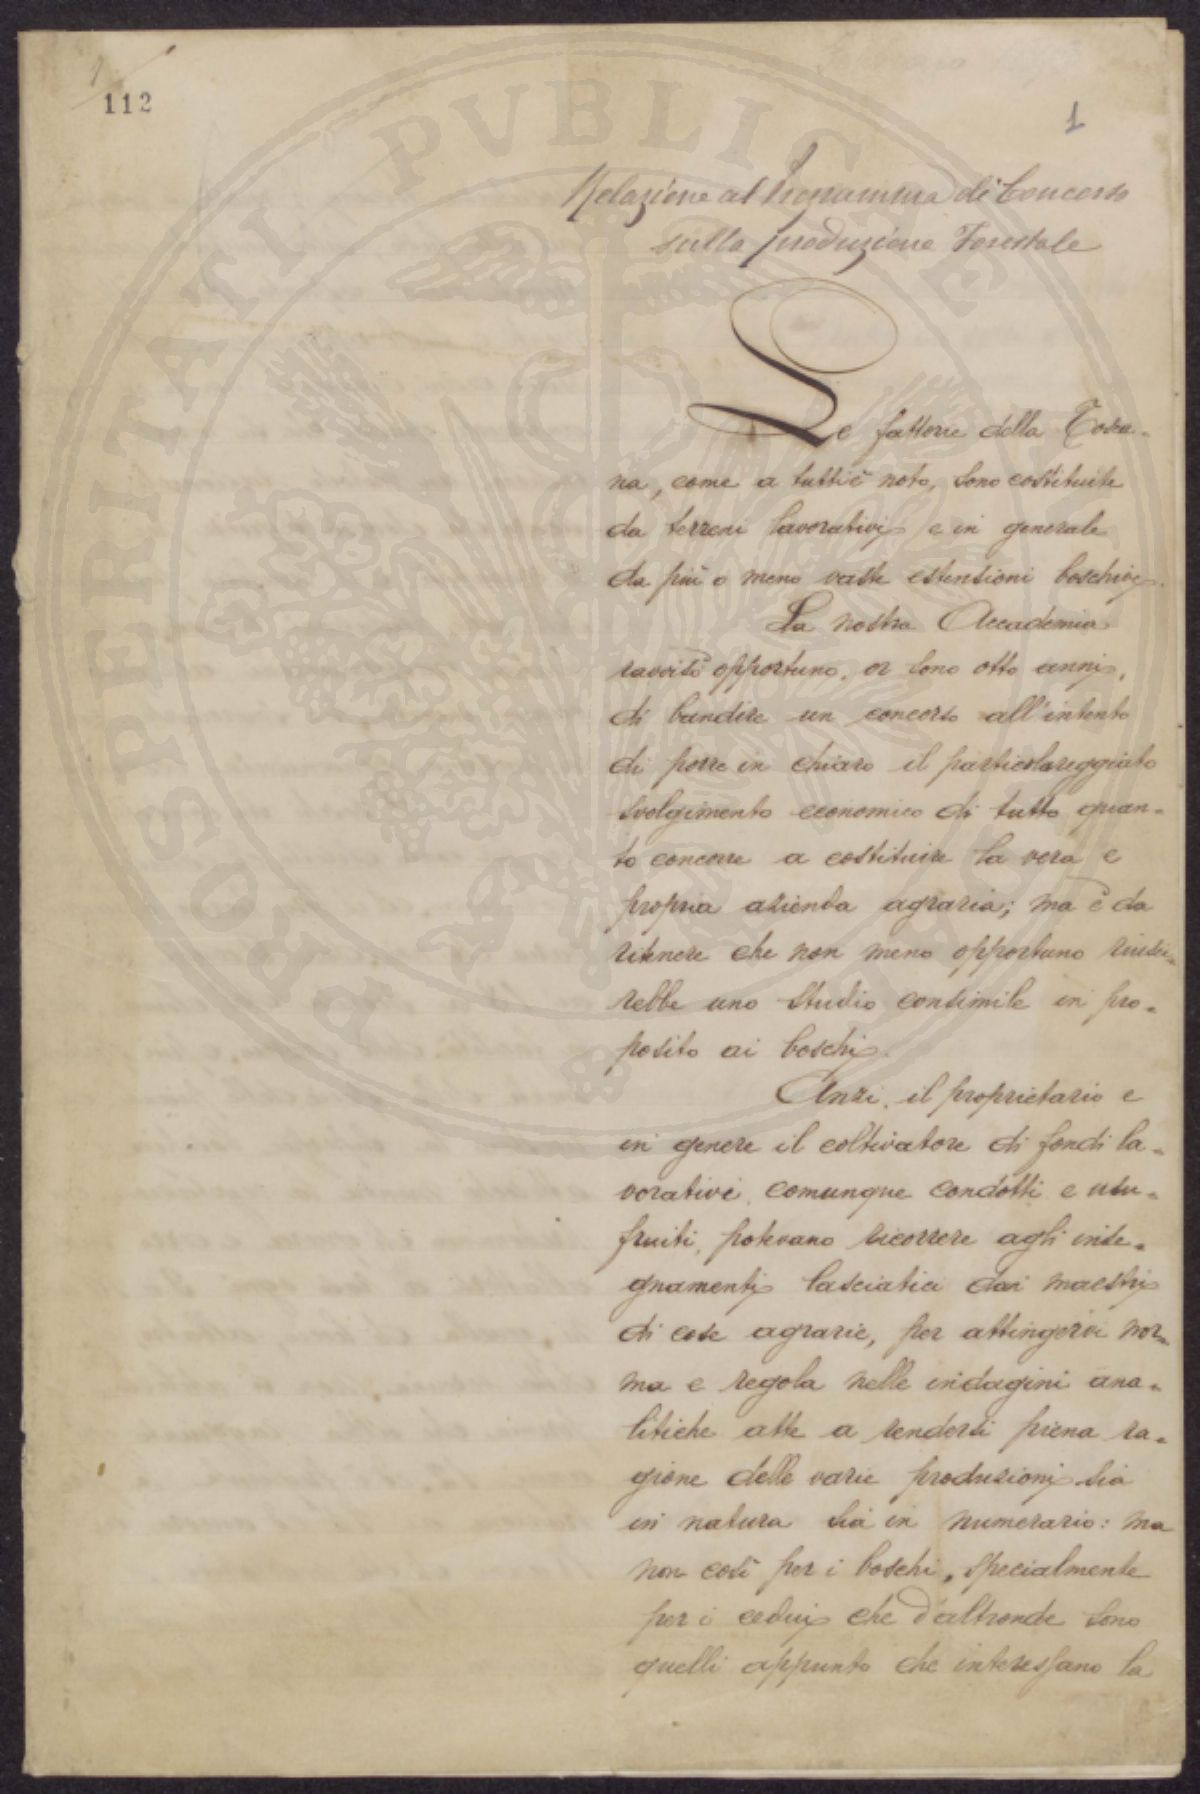 112
1
Relazione al Programma di Concorso
sulla produzione Forestale
Le fattorie della Tosca-
na, come a tutti è noto, sono costituite
da terreni lavorativi e in generale
da più o meno vaste estensioni boschive.
La nostra Accademia
ravvisò opportuno, or sono otto anni,
di bandire un concorso all'intento
di porre in chiaro il particolareggiato
svolgimento economico di tutto quan-
to concorre a costituire la vera e
propria azienda agraria; ma è da
ritenere che non meno opportuno riusci-
rebbe uno studio consimile in pro-
posito ai boschi.
Anzi, il proprietario e
in genere il coltivatore di fondi la-
vorativi, comunque condotti e usu-
fruiti, potevano ricorrere agli inse-
gnamenti lasciatici dai maestri
di cose agrarie, per attingervi nor-
ma e regola nelle indagini ana-
litiche atte a rendersi piena ra-
gione delle varie produzioni sia
in natura sia in numerario: ma
non così per i boschi, specialmente
per i cedui che d'altronde sono
quelli appunto che interessano la
PROSPERITATI PVBLICAE